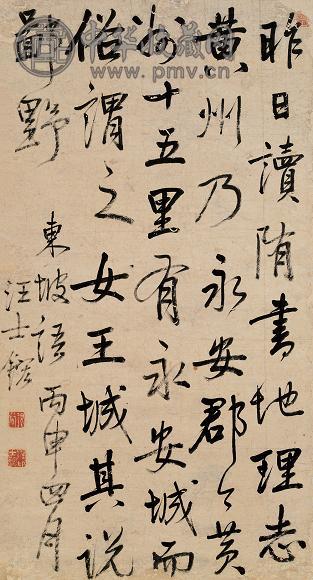 昨日讀隋書地理志
黄州乃永安郡今黄
州十五里有永安城而
俗謂之女王城其説
鄙野
東坡語丙申四月
汪士鋐
中华收藏网
www.pmv.cn